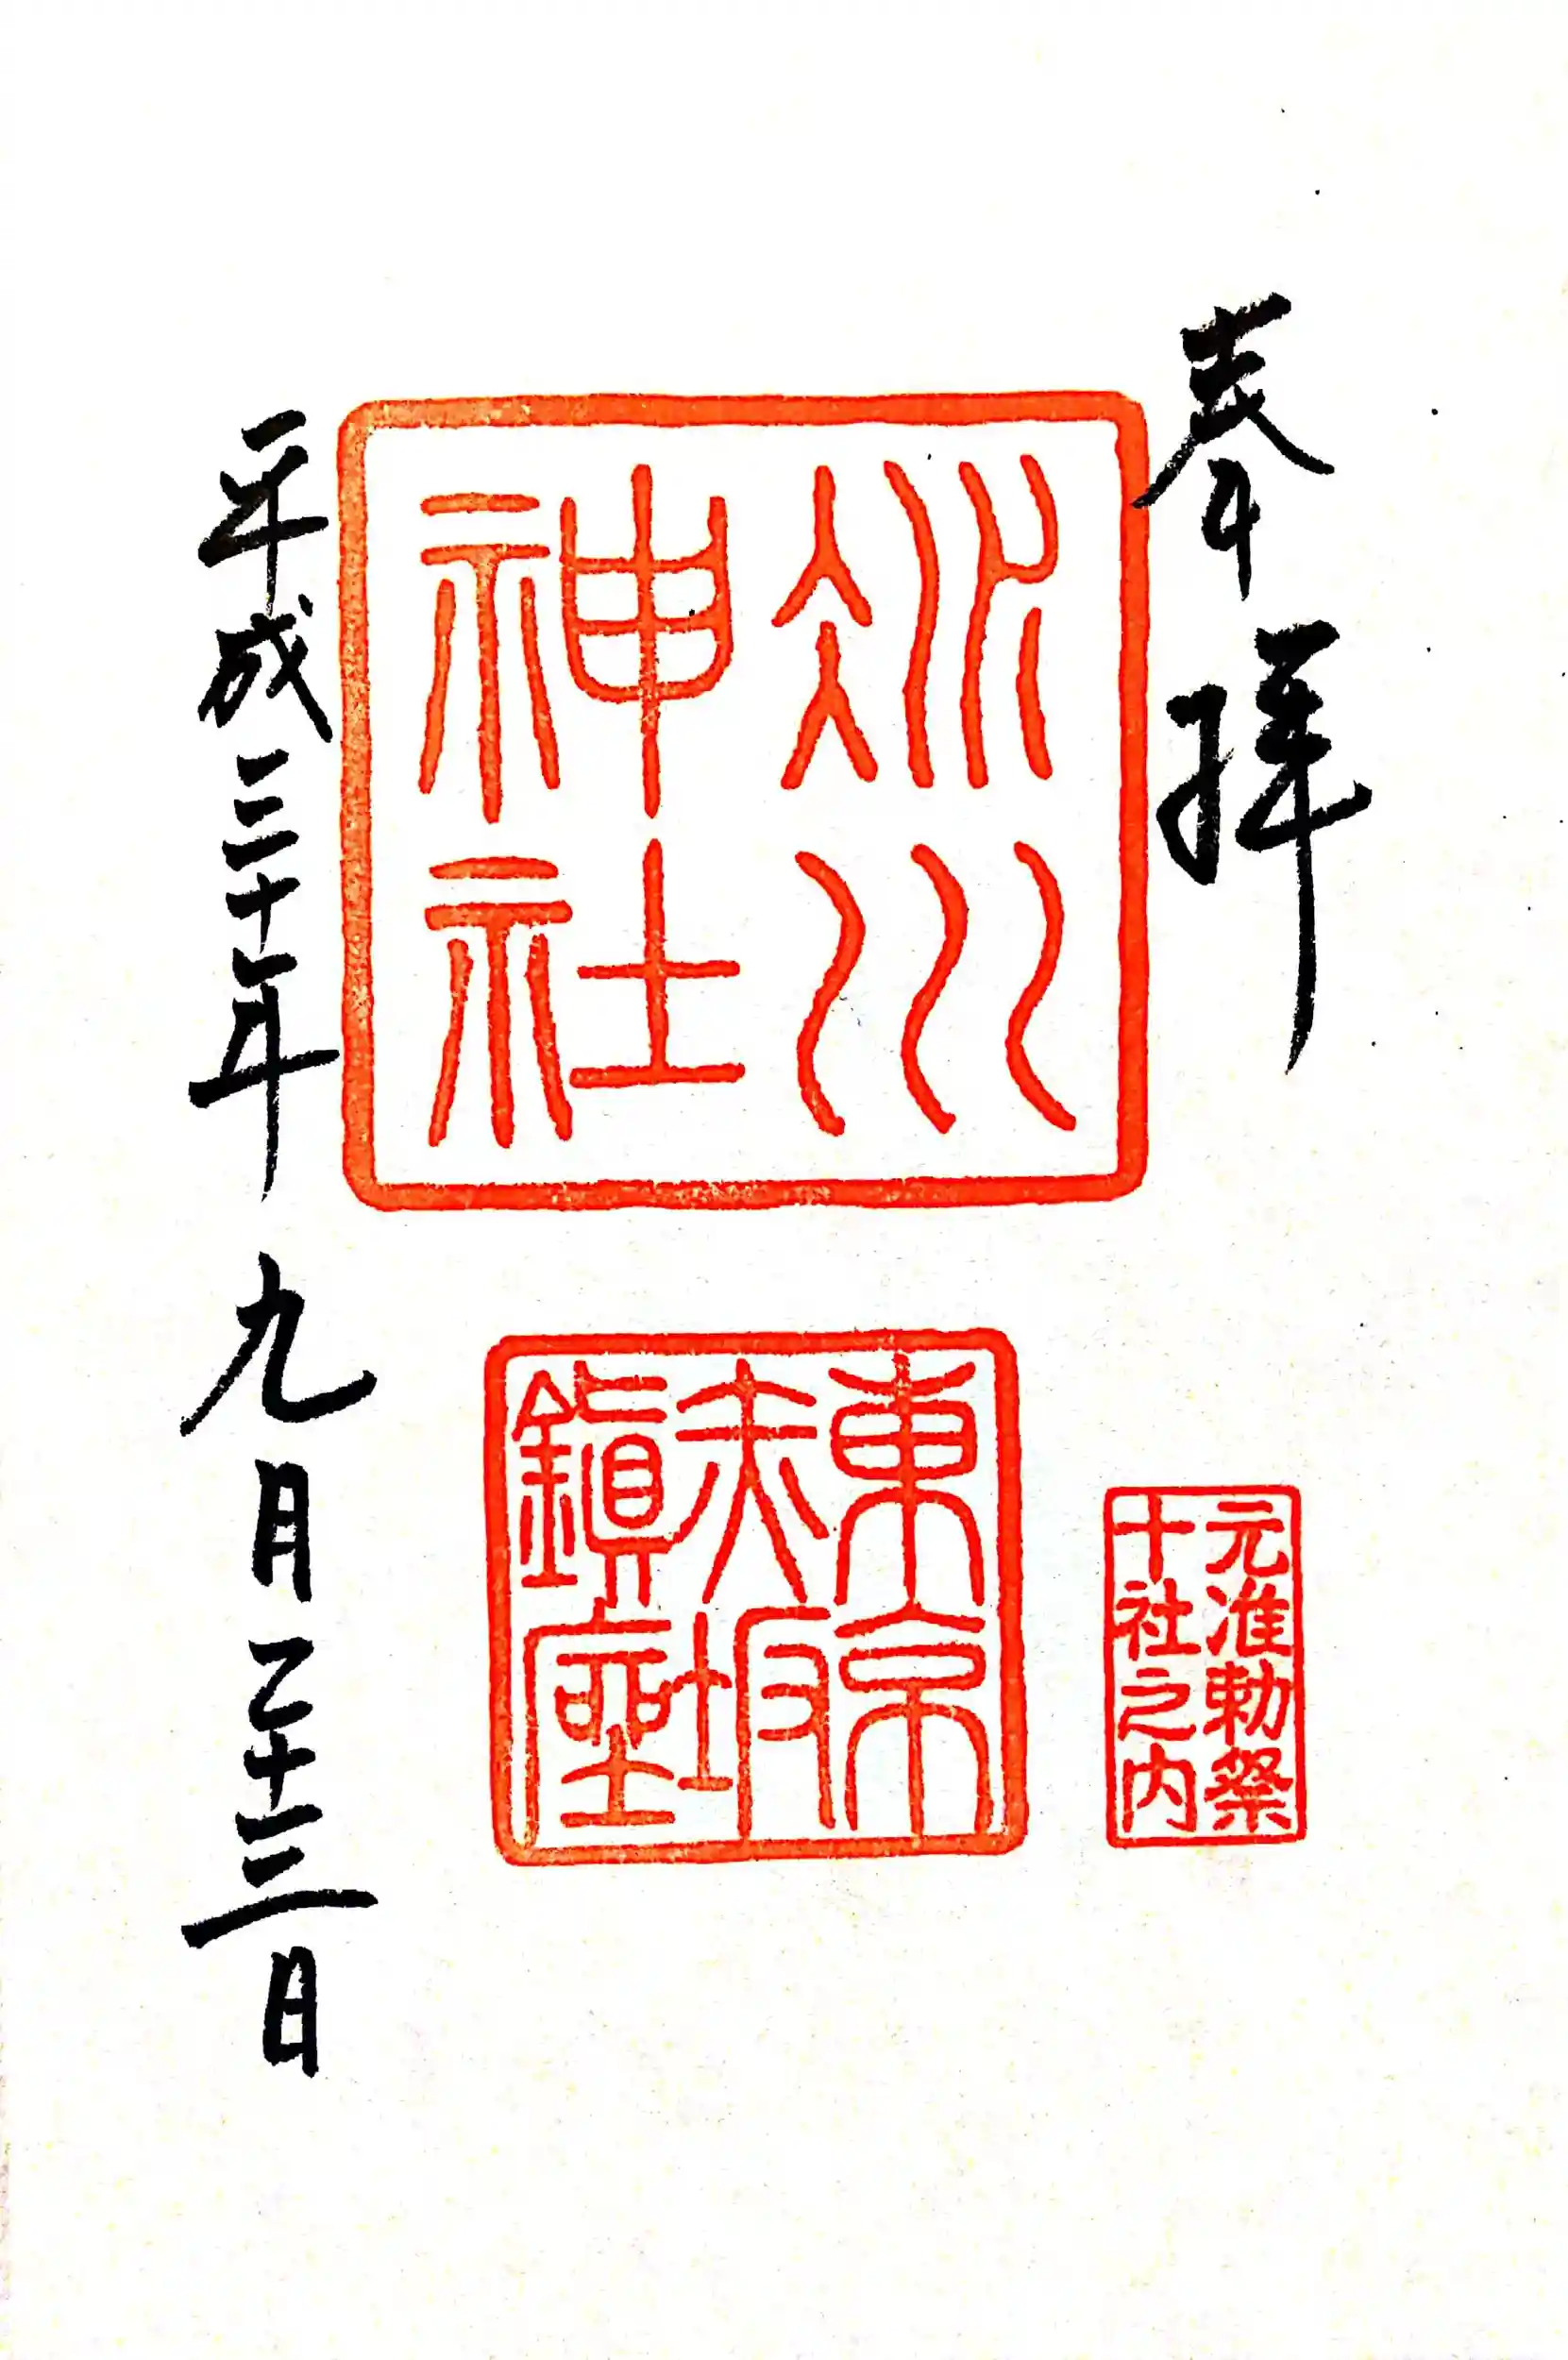 奉拝
氷川
神社
元准勅祭
十社之内
東京
赤坂
鎮座
平成三十年九月二十三日